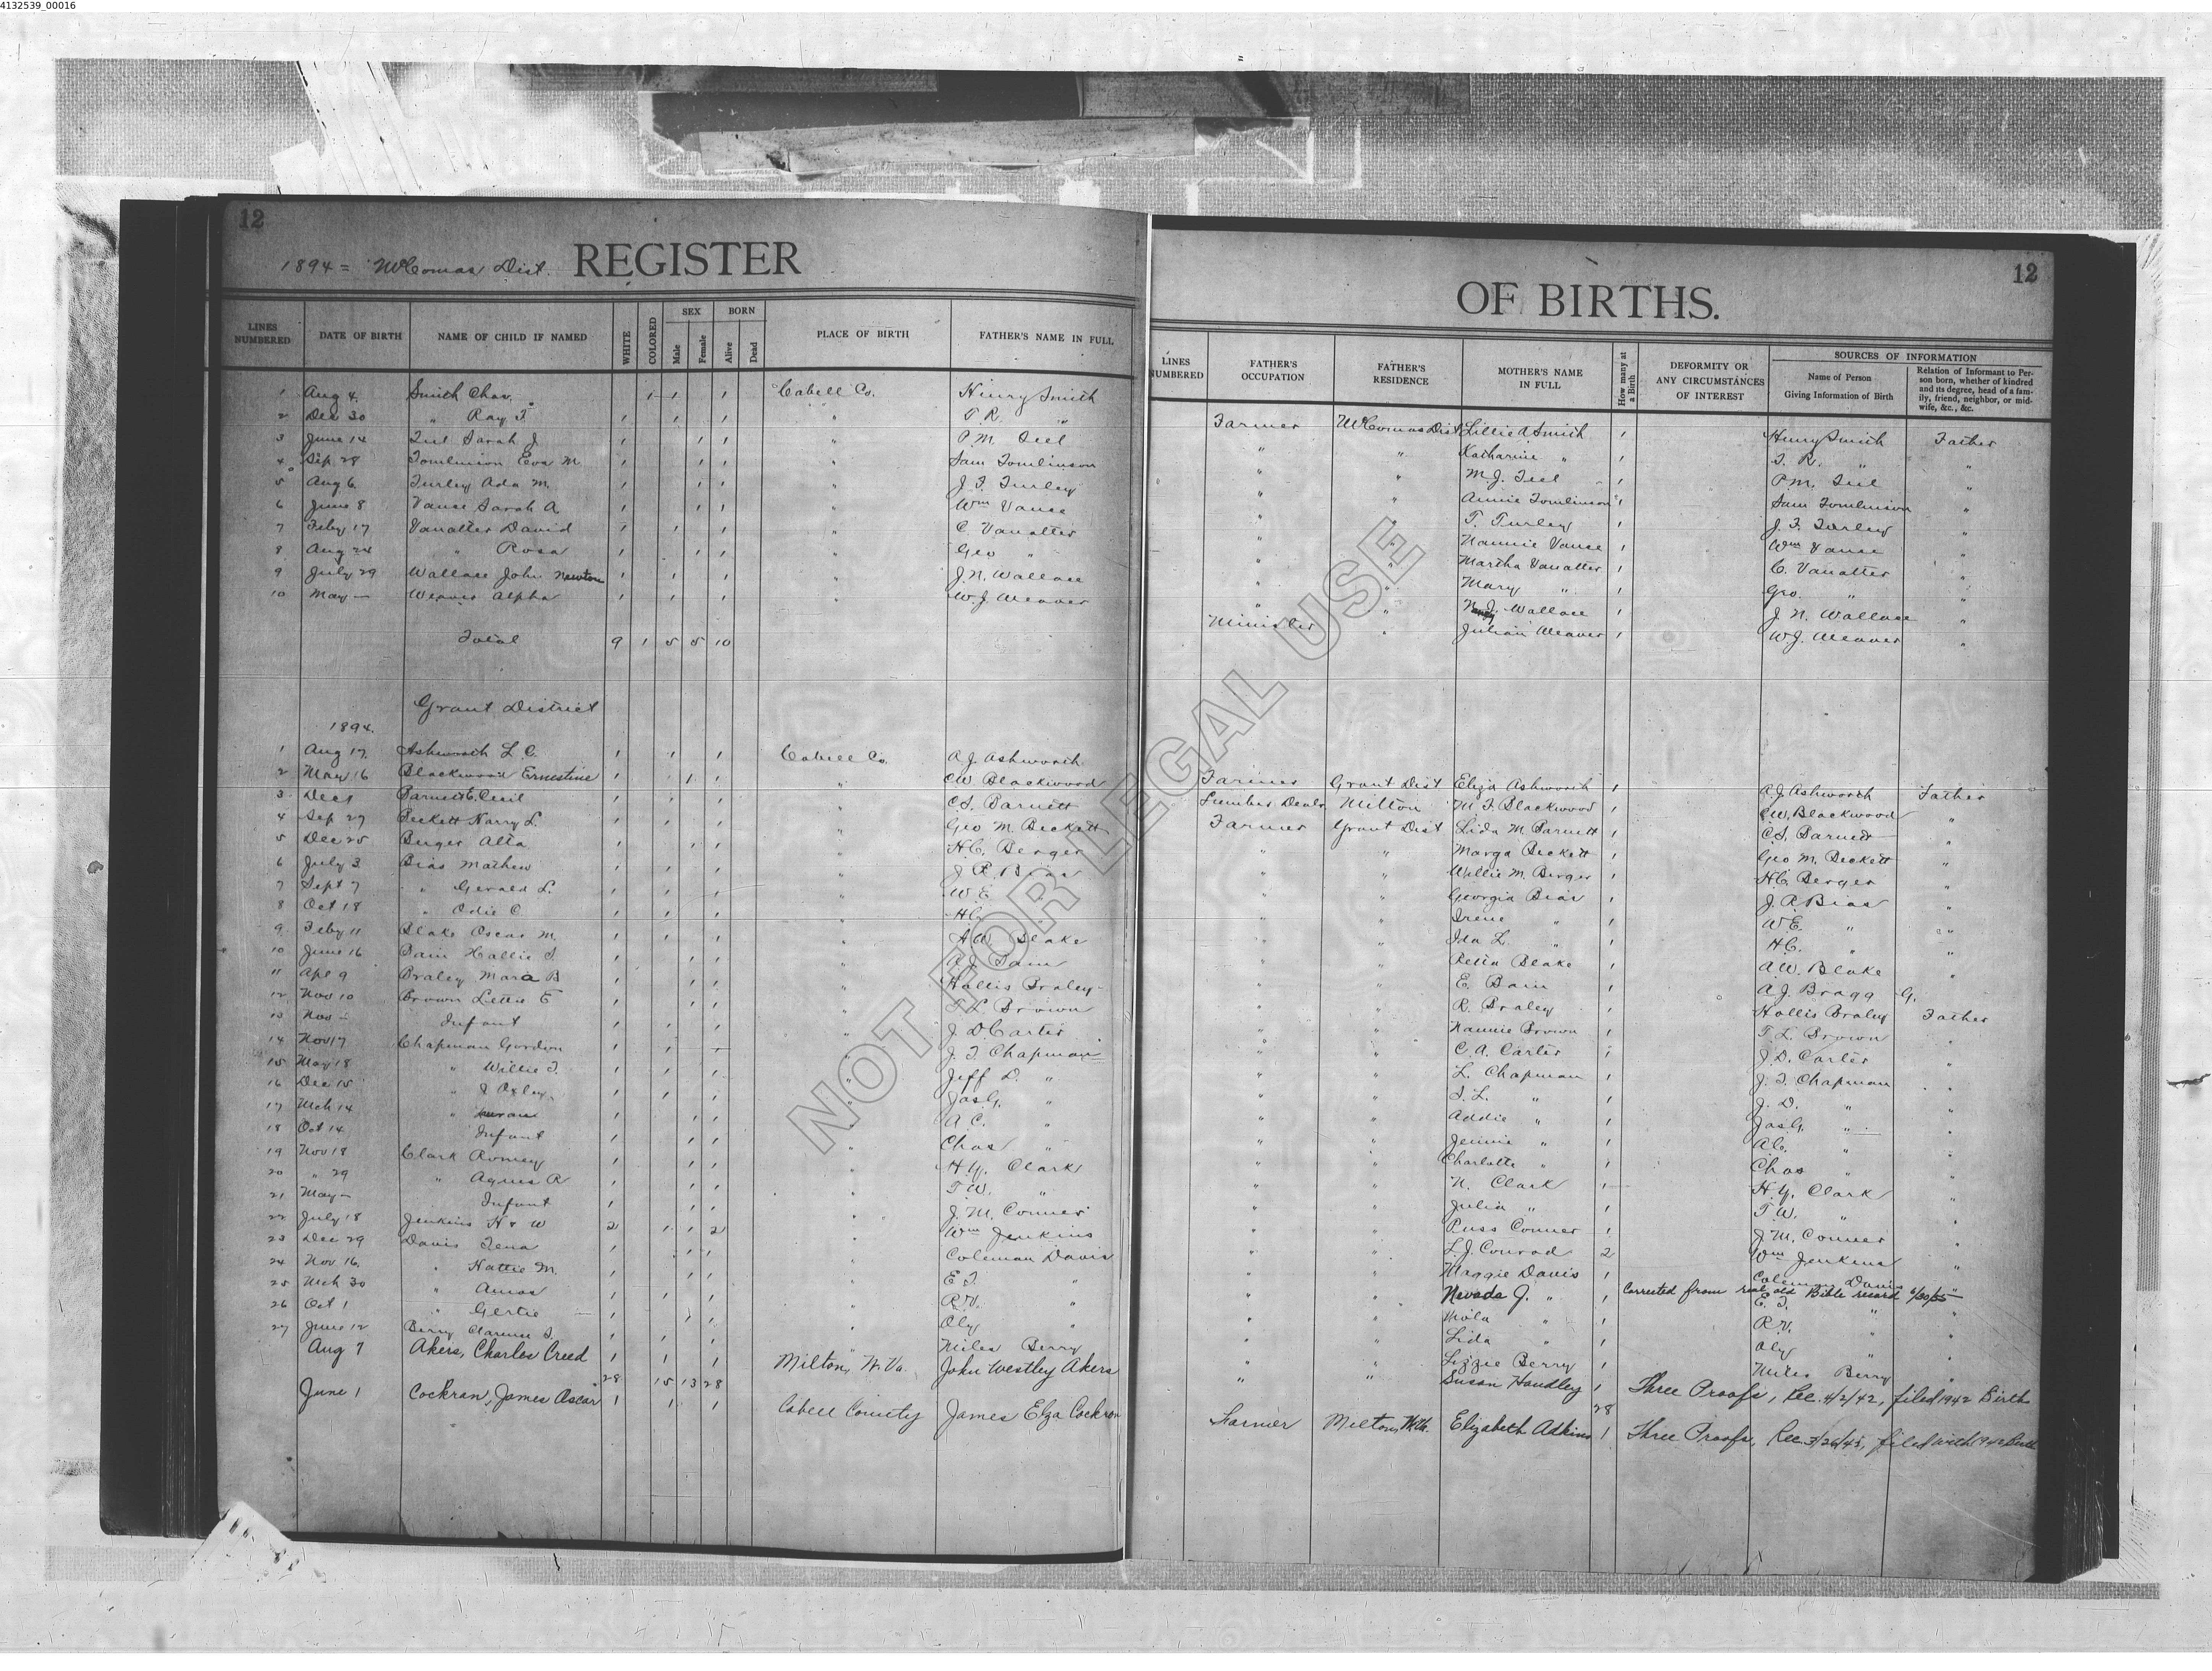 4132539_00016
12
1894 = McComas Dist. REGISTER
LINES NUMBERED DATE OF BIRTH NAME OF CHILD IF NAMED WHITE COLORED SEX Male Female BORN Alive Dead PLACE OF BIRTH FATHER'S NAME IN FULL
1 Aug 4. Smith Chas. 1 1 1 Cabell Co. Henry Smith
2 Dec 30 " Ray T. 1 1 1 " T. R. "
3 June 14 Teel Sarah J. 1 1 1 " P.M. Teel
4 Sep 28 Tomlinson Eva M. 1 1 1 " Sam Tomlinson
5 Aug 6. Turley Ada M. 1 1 1 " J. F. Turley
6 June 8 Vance Sarah A. 1 1 1 " Wm Vance
7 Feby 17 Vanatter David 1 1 1 " C. Vanatter
8 Aug 24 " Rosa 1 1 1 " Geo "
9 July 29 Wallace John Newton 1 1 1 " J. N. Wallace
10 May — Weaver Alpha 1 1 1 " W. J. Weaver
Total 9 1 5 5 10
Grant District
1894.
1 Aug 17. Ashworth L. C. 1 1 1 Cabell Co. A. J. Ashworth
2 May 16 Blackwood Ernestine 1 1 1 " C W Blackwood
3 Dec 1 Barnett E. Cecil 1 1 1 " C. S. Barnett
4 Sep 27 Beckett Harry L. 1 1 1 " Geo M. Beckett
5 Dec 25 Burger Alta 1 1 1 " H. C. Berger
6 July 3 Bias Mathew 1 1 1 " J. R. Bias
7 Sept 7 " Gerald L. 1 1 1 " W. E. "
8 Oct 18 " Odie C. 1 1 1 " H. C. "
9 Feby 11 Blake Oscar M. 1 1 1 " A. W. Blake
10 June 16 Bain Hallie 1 1 1 " A. J. Bain
11 Apl 9 Braley Mara B 1 1 1 " Hollis Braley
12 Nov 10 Brown Lettie E 1 1 1 " T. L. Brown
13 Nov — Infant 1 1 1 " J. D. Carter
14 Nov 17 Chapman Gordon 1 1 1 " J. T. Chapman
15 May 18 " Willie T. 1 1 1 " Jeff D. "
16 Dec 15 " J Oxley 1 1 1 " Jas G. "
17 Mch 14 " 1 1 1 " A. C. "
18 Oct 14 Infant 1 1 1 " Chas "
19 Nov 18 Clark Romey 1 1 1 " H. Y. Clark
20 " 29 " Agnes R 1 1 1 " T. W. "
21 May — Infant 1 1 1 " J. M. Conner
22 July 18 Jenkins H & W 2 1 1 2 " Wm Jenkins
23 Dec 29 Davis Tena 1 1 1 " Coleman Davis
24 Nov 16. " Hattie M. 1 1 1 " E. T. "
25 Mch 30 " Amos 1 1 1 " R. V. "
26 Oct 1 " Gertie 1 1 1 " Oly "
27 June 12 Berry Clarence S. 1 1 1 " Miles Berry
Aug 7 Akers, Charles Creed 1 1 1 Milton, W. Va. John Westley Akers
28 15 13 28
June 1 Cockran, James Oscar 1 1 1 Cabell County James Elza Cockran
OF BIRTHS. 12
LINES NUMBERED FATHER'S OCCUPATION FATHER'S RESIDENCE MOTHER'S NAME IN FULL How many at a Birth DEFORMITY OR ANY CIRCUMSTANCES OF INTEREST SOURCES OF INFORMATION Name of Person Giving Information of Birth Relation of Informant to Person born, whether of kindred and its degree, head of a family, friend, neighbor, or midwife, &c., &c.
Farmer McComas Dist Lillie A Smith 1 Henry Smith Father
" " Katharine " 1 T. R. " "
" " M. J. Teel 1 P. M. Teel "
" " Annie Tomlinson 1 Sam Tomlinson "
" " T. Turley 1 J. F. Turley "
" " Nannie Vance 1 Wm Vance "
" " Martha Vanatter 1 C. Vanatter "
" " Mary " 1 Geo. " "
" " Wallace 1 J. N. Wallace "
Minister " Julian Weaver 1 W. J. Weaver "
Farmer Grant Dist Eliza Ashworth 1 A. J. Ashworth Father
Lumber Dealer Milton M. F. Blackwood 1 C. W. Blackwood "
Farmer Grant Dist Lida M Barnett 1 C. S. Barnett "
" " Marga Beckett 1 Geo M. Beckett "
" " Willie M. Berger 1 H. C. Berger "
" " Georgia Bias 1 J. R. Bias "
" " Irene " 1 W. E. " "
" " Ida L. " 1 H. C. " "
" " Blake 1 A. W. Blake "
" " E. Bain 1 A. J. Bragg G.
" " R. Braley 1 Hollis Braley Father
" " Nannie Brown 1 T. L. Brown "
" " C. A. Carter 1 J. D. Carter "
" " L. Chapman 1 J. T. Chapman "
" " S. L. " 1 J. D. " "
" " Addie " 1 Jas G. " "
" " Jennie " 1 A. C. " "
" " Charlotte " 1 Chas " "
" " N. Clark 1 H. Y. Clark "
" " Julia " 1 T. W. " "
" " Puss Conner 1 J. M. Conner "
" " L. J. Conrad 2 Wm Jenkins "
" " Maggie Davis 1 Coleman Davis "
" " Nevada J. " 1 Corrected from real old Bible record 6/30/55 E. T. " "
" " Mola " 1 R. V. " "
" " Lida " 1 Oly " "
" " Lizzie Berry 1 Miles Berry "
" " Susan Handley 1 Three Proofs, Rec. 4/2/42, filed 1942 Birth
28
Farmer Milton, W.Va. Elizabeth Adkins 1 Three Proofs, Rec. 3/26/43, filed with 1942 Birth
NOT FOR LEGAL USE